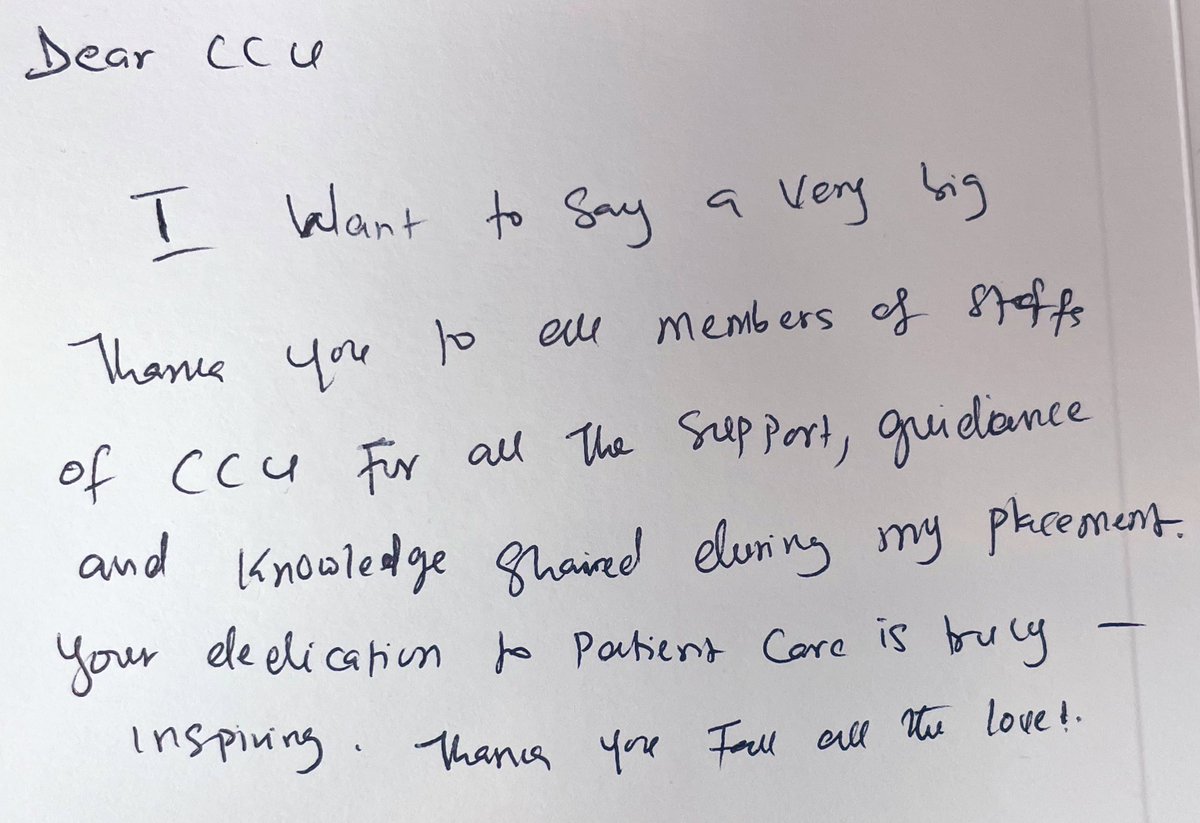 Dear CCU
I want to say a very big
Thank you to all members of staffs
of CCU For all the support, guidance
and knowledge shared during my placement.
Your dedication to patient care is truly –
inspiring. Thank you For all the love!.